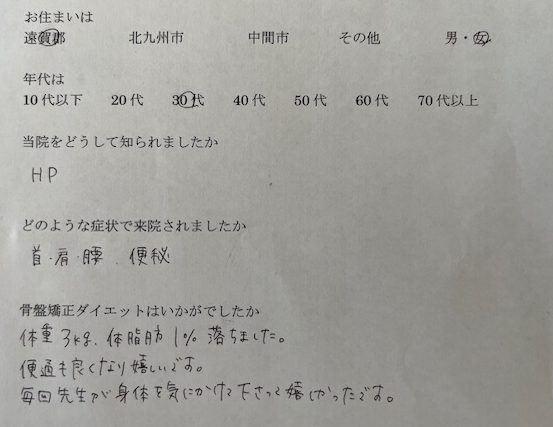 お住まいは
遠賀郡 北九州市 中間市 その他 男・女
年代は
10代以下 20代 30代 40代 50代 60代 70代以上
当院をどうして知られましたか
HP
どのような症状で来院されましたか
首・肩・腰、便秘
骨盤矯正ダイエットはいかがでしたか
体重3kg、体脂肪1%落ちました。
便通も良くなり嬉しいです。
毎回先生が身体を気にかけて下さって嬉しかったです。